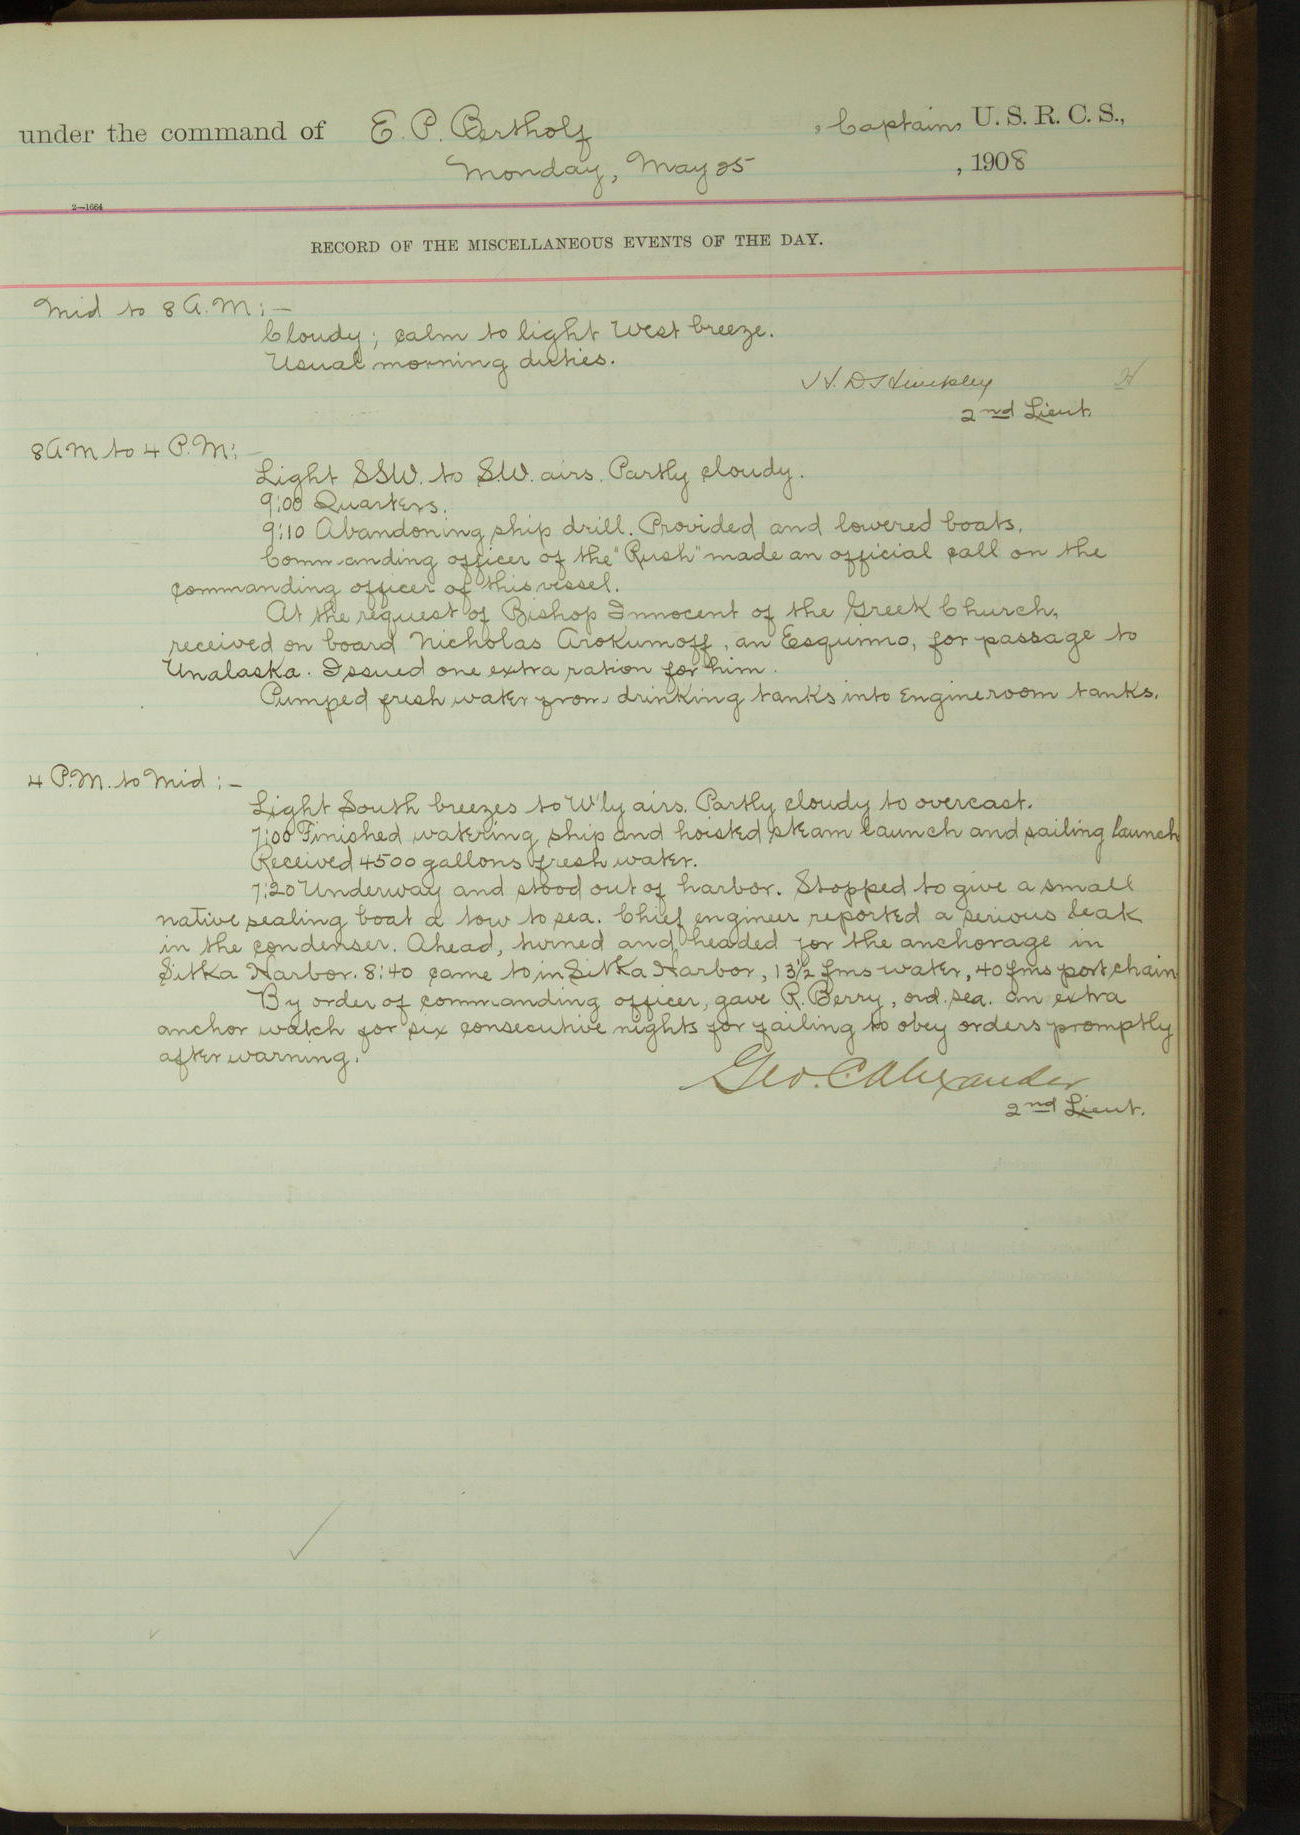 under the command of E. P. Bertholf, Captain, U. S. R. C. S.,
Monday, May 25, 1908
2—1664
RECORD OF THE MISCELLANEOUS EVENTS OF THE DAY.
Mid to 8 A.M:—
Cloudy; calm to light West breeze.
Usual morning duties.
H. D. Hinckley H
2nd Lieut.
8 AM to 4 P.M:—
Light SSW. to S.W. airs. Partly cloudy.
9:00 Quarters.
9:10 Abandoning ship drill. Provided and lowered boats.
Commanding officer of the "Rush" made an official call on the
commanding officer of this vessel.
At the request of Bishop Innocent of the Greek Church,
received on board Nicholas Arokumoff, an Esquimo, for passage to
Unalaska. Issued one extra ration for him.
Pumped fresh water from drinking tanks into engineroom tanks.
4 P.M. to Mid:—
Light South breezes to W'ly airs. Partly cloudy to overcast.
7:00 Finished watering ship and hoisted steam launch and sailing launch
Received 4500 gallons fresh water.
7:20 Underway and stood out of harbor. Stopped to give a small
native sealing boat a tow to sea. Chief engineer reported a serious leak
in the condenser. Ahead, turned and headed for the anchorage in
Sitka Harbor. 8:40 came to in Sitka Harbor, 13½ fms water, 40 fms port chain
By order of commanding officer, gave R. Berry, ord. sea. an extra
anchor watch for six consecutive nights for failing to obey orders promptly
after warning.
Geo. C. Alexander
2nd Lieut.